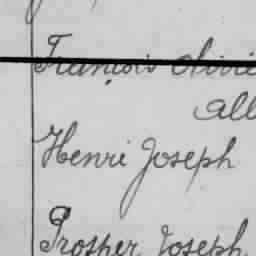 François Olivie
All
Henri Joseph
Prosper Joseph